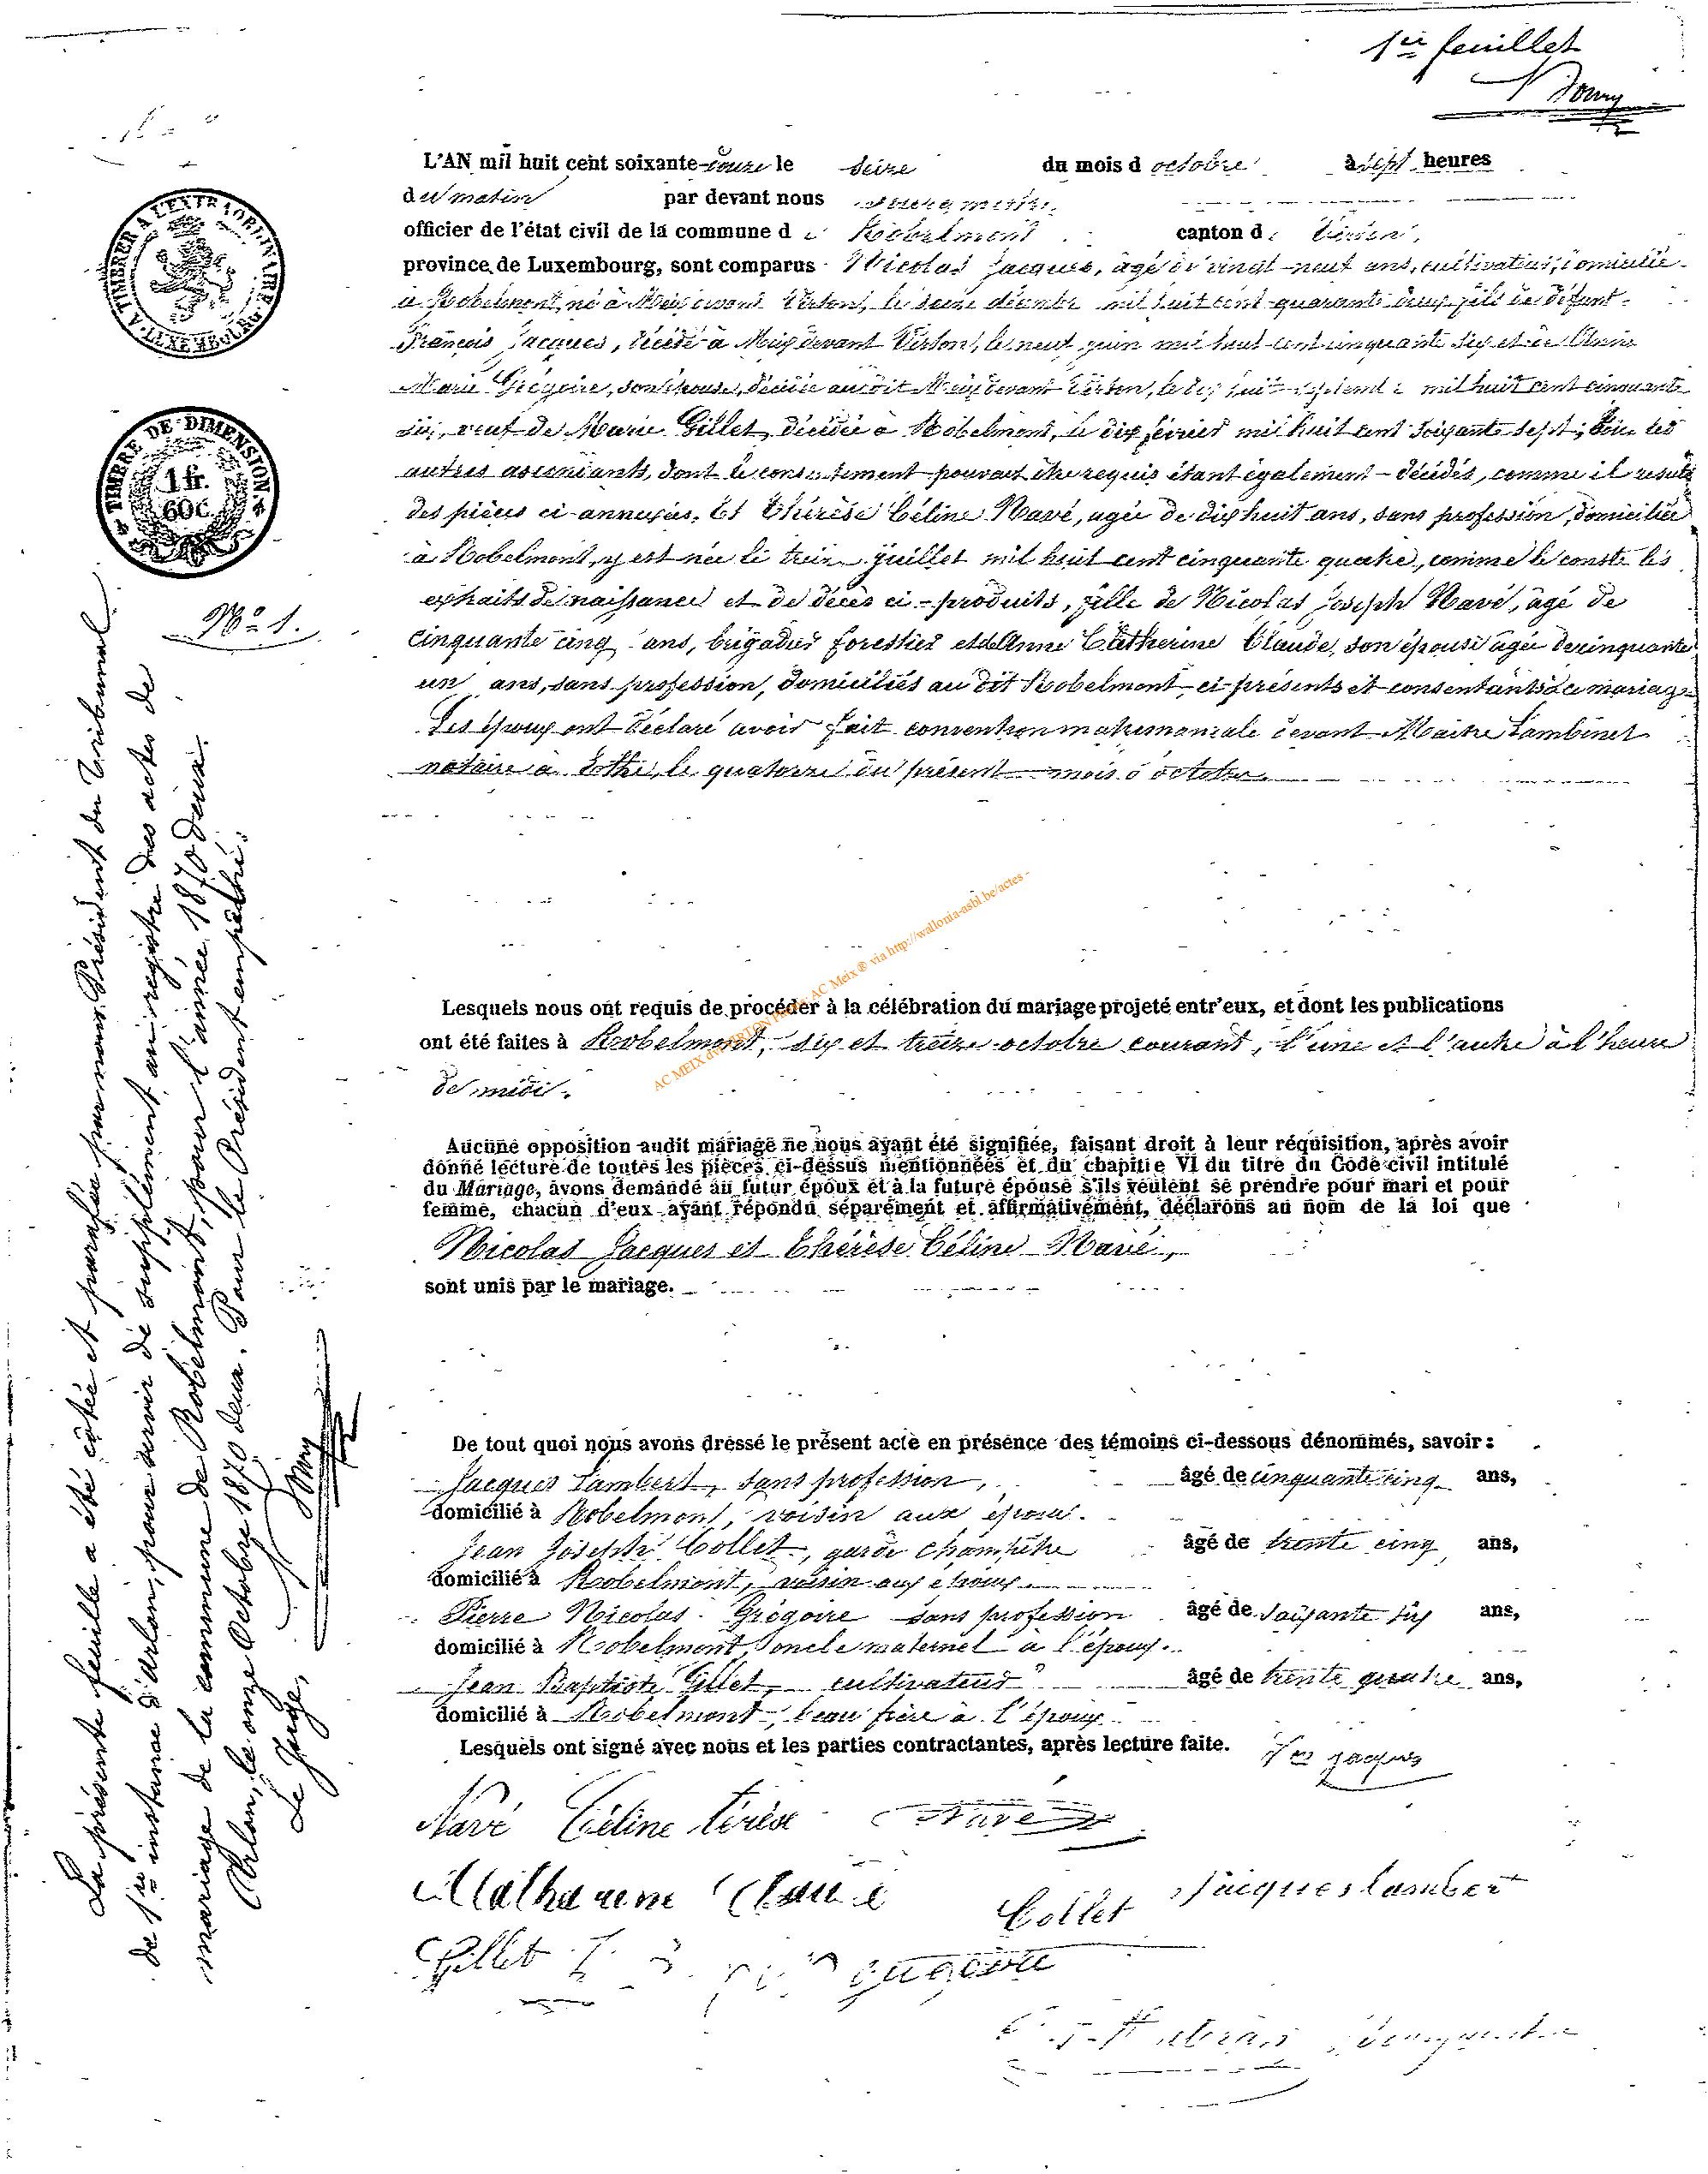 1er feuillet
A TIMBRER A L'EXTRAORDINAIRE
LUXEMBOURG
TIMBRE DE DIMENSION
1 fr.
60 c.
No 1.
La présente feuille a été côtée et parafée par nous Président du Tribunal
de 1re instance d'Arlon, pour servir de supplément au registre des actes de
mariage de la commune de Robelmont, pour l'année 1870 deux.
Arlon, le onze Octobre 1870 deux. Pour le Président empêché:
Le Juge,
L'AN mil huit cent soixante-douze le seize du mois d octobre à sept heures
du matin par devant nous
officier de l'état civil de la commune de Robelmont canton de Virton,
province de Luxembourg, sont comparus Nicolas Jacques, âgé de vingt-neuf ans, cultivateur, domicilié
à Robelmont, né à Meix devant Virton, le décembre mil huit cent quarante deux, fils de défunt
François Jacques, décédé à Meix devant Virton, le neuf juin mil huit cent cinquante six et de Anne
Marie Grégoire, son épouse, décédée au dit Meix devant Virton, le mil huit cent cinquante
six, veuf de Marie Gillet, décédée à Robelmont, le dix février mil huit cent soixante sept; tous les
autres ascendants, dont le consentement pouvait être requis étant également décédés, comme il résulte
des pièces ci-annexées. Et Thérèse Céline Navé, agée de dix huit ans, sans profession, domiciliée
à Robelmont, y est née le juillet mil huit cent cinquante quatre, comme le conste les
extraits de naissance et de décès ci-produits, fille de Nicolas Joseph Navé, âgé de
cinquante cinq ans, brigadier forestier et de Anne Catherine Claude, son épouse âgée de cinquante
un ans, sans profession, domiciliés au dit Robelmont ci-présents et consentants à ce mariage
Les époux ont déclaré avoir fait convention matrimoniale devant Maitre Lambinet
notaire à Ethe, le quatorze du présent mois d'octobre.
AC MEIX dvt VIRTON AC Meix ® via http://wallonia-asbl.be/actes -
Lesquels nous ont requis de procéder à la célébration du mariage projeté entr'eux, et dont les publications
ont été faites à Robelmont, six et treize octobre courant, l'une et l'autre à l'heure
de midi.
Aucune opposition audit mariage ne nous ayant été signifiée, faisant droit à leur réquisition, après avoir
donné lecture de toutes les pièces ci-dessus mentionnées et du chapitre VI du titre du Code civil intitulé
du Mariage, avons demandé au futur époux et à la future épouse s'ils veulent se prendre pour mari et pour
femme, chacun d'eux ayant répondu séparément et affirmativement, déclarons au nom de la loi que
Nicolas Jacques et Thérèse Céline Navé,
sont unis par le mariage.
De tout quoi nous avons dressé le présent acte en présence des témoins ci-dessous dénommés, savoir:
Jacques Lambert, sans profession, âgé de cinquante cinq ans,
domicilié à Robelmont, voisin aux époux.
Jean Joseph Collet, garde champêtre âgé de trente cinq ans,
domicilié à Robelmont, voisin aux époux.
Pierre Nicolas Grégoire sans profession âgé de soixante six ans,
domicilié à Robelmont, oncle maternel à l'époux.
Jean Baptiste Gillet, cultivateur âgé de trente quatre ans,
domicilié à Robelmont, beau frère à l'époux.
Lesquels ont signé avec nous et les parties contractantes, après lecture faite. Jacques
Navé Céline térèse Navé
Claude Collet Jacques lambert
Gillet